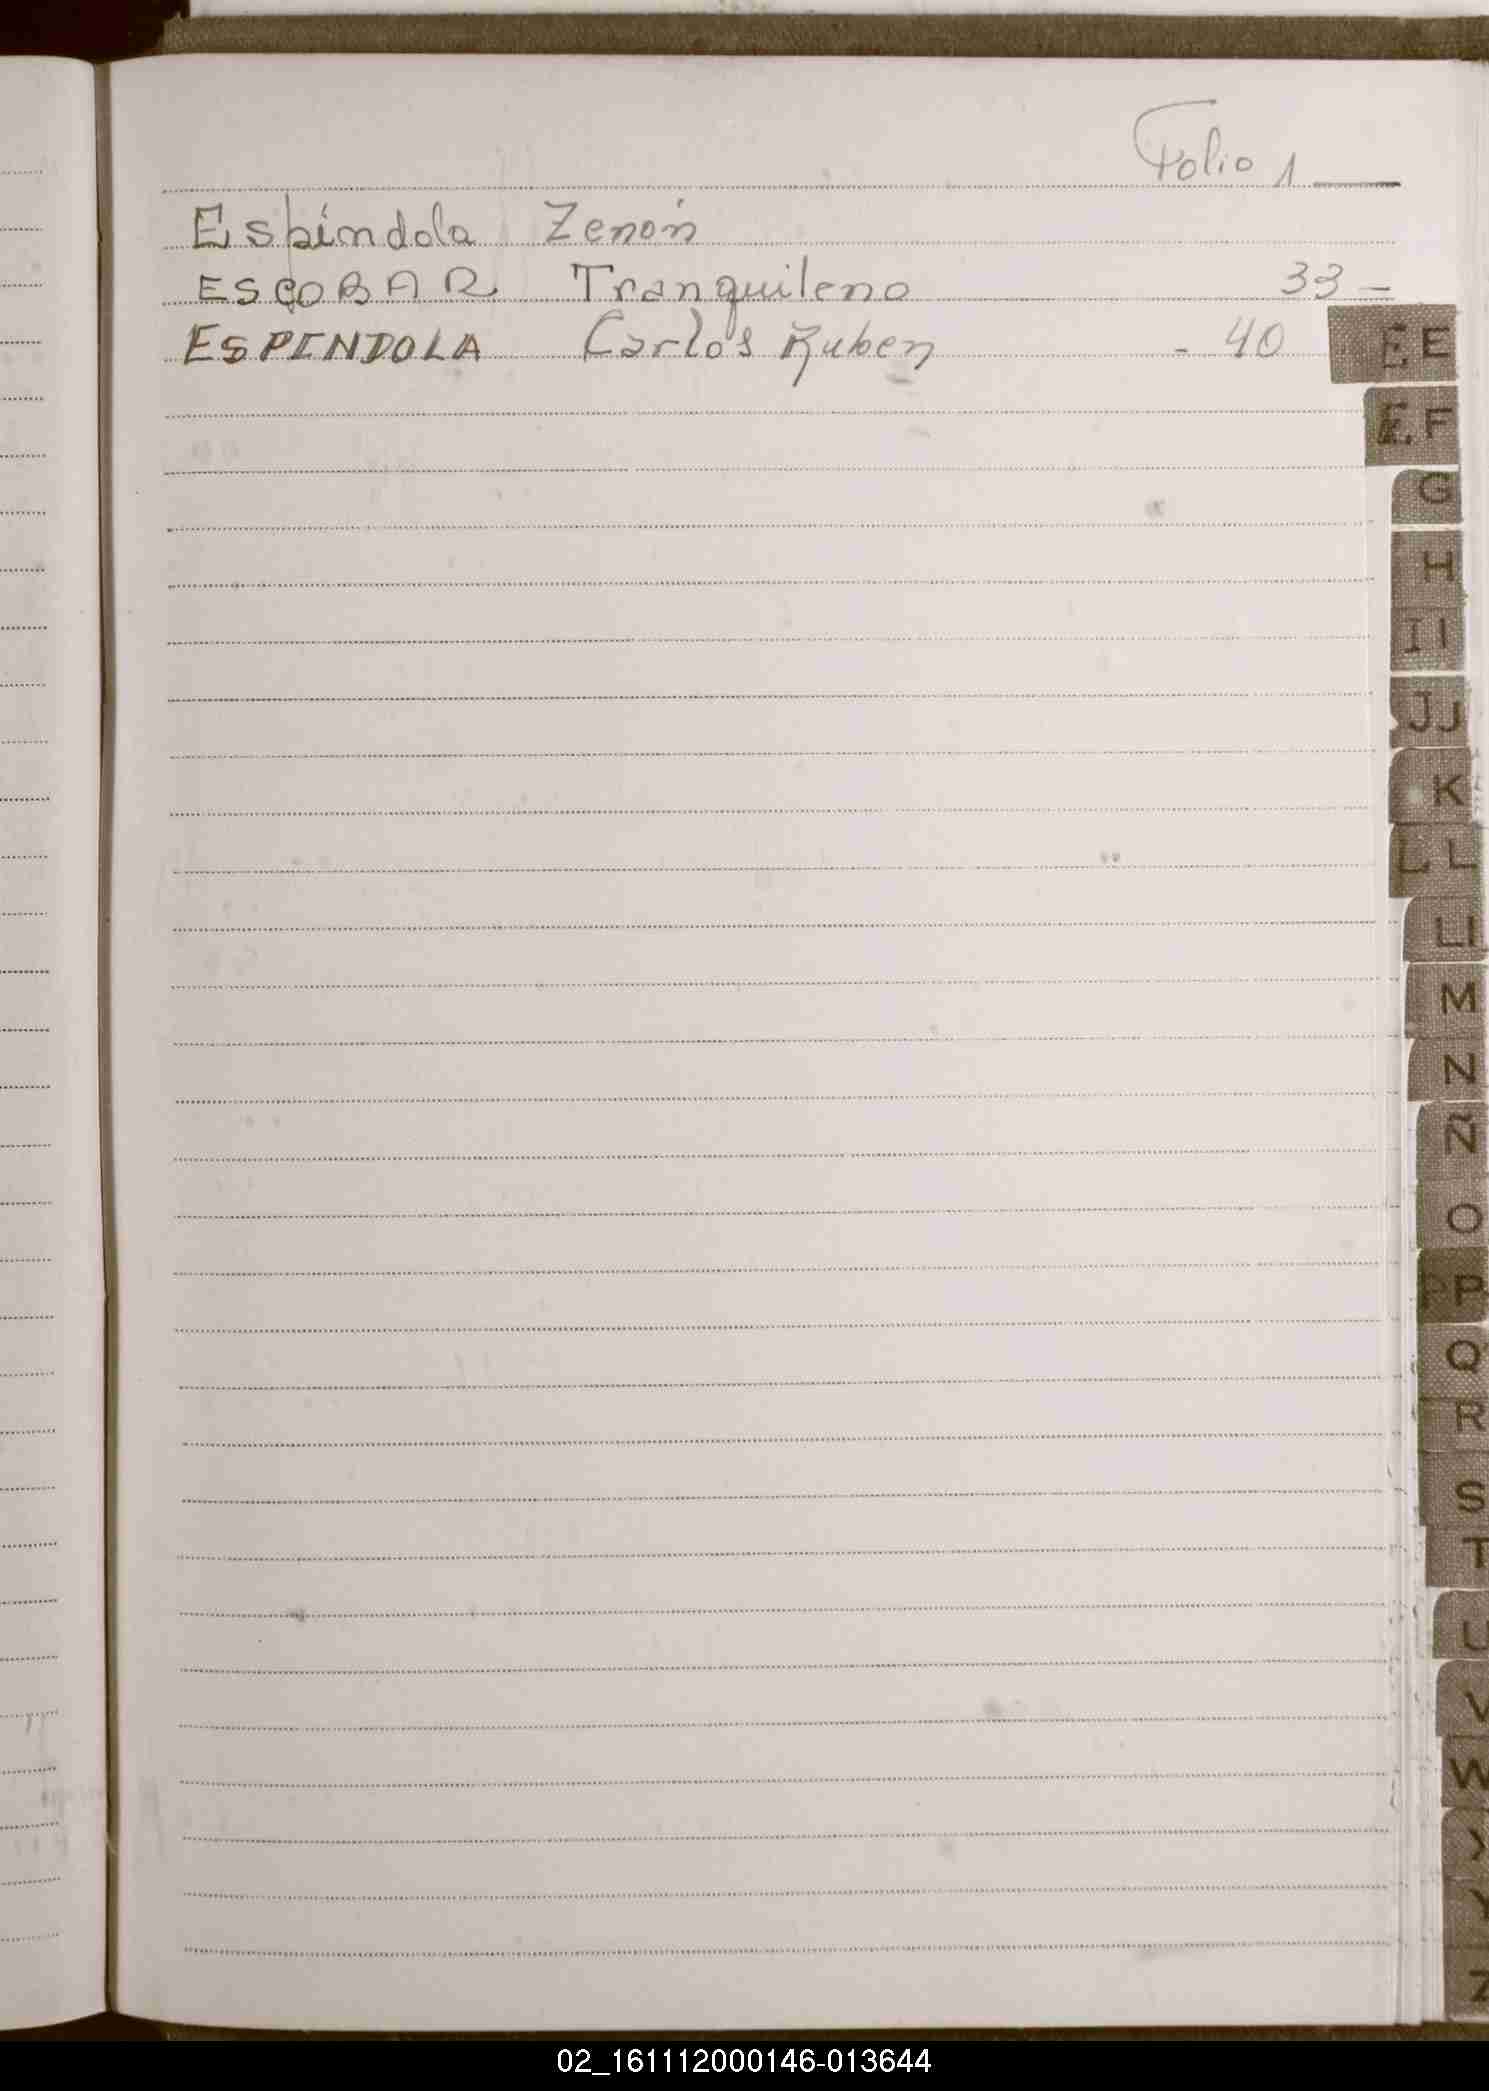 Folio 1
Espíndola Zenón
ESCOBAR Tranquileno 33 -
ESPINDOLA Carlos Ruben - 40
E E
F. F
G
H
I I
J J
K
L L
Ll
M
N
Ñ
O
P P
Q
R
S
T
U
V
W
X
Y
Z
02_161112000146-013644